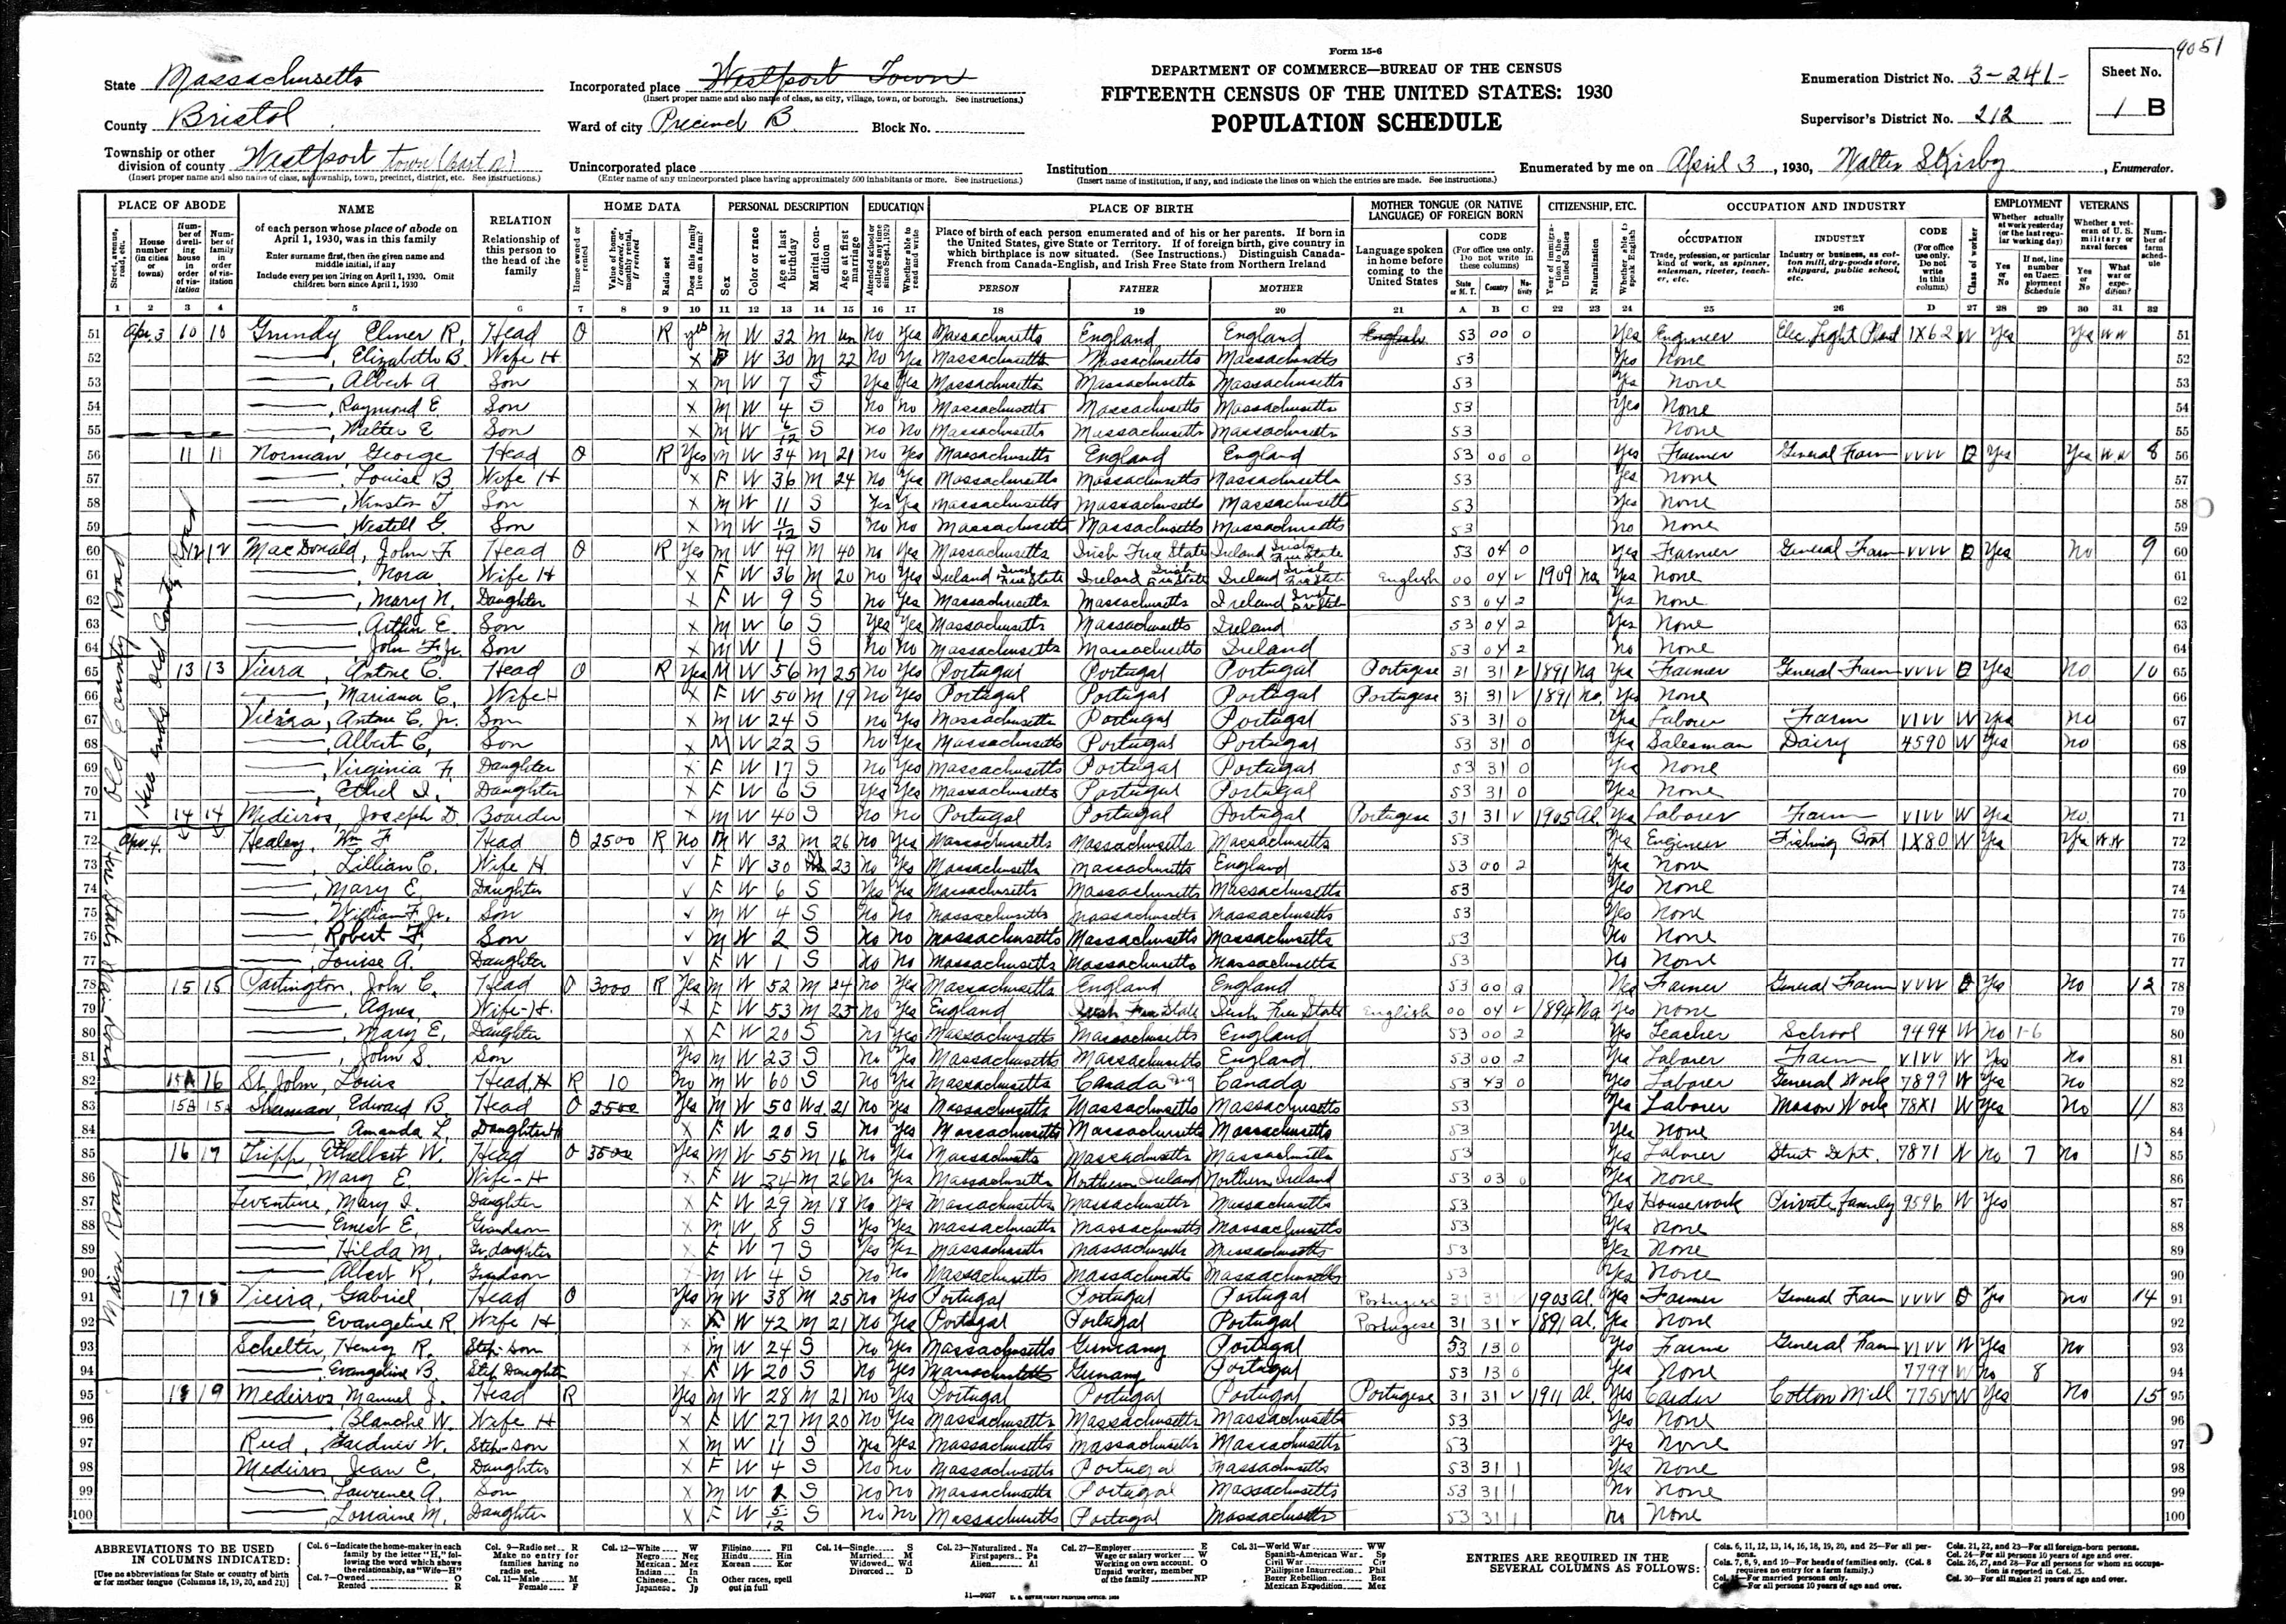 9051
Form 15-6
DEPARTMENT OF COMMERCE—BUREAU OF THE CENSUS
FIFTEENTH CENSUS OF THE UNITED STATES: 1930
POPULATION SCHEDULE
State Massachusetts
County Bristol
Township or other division of county Westport town (part of)
(Insert proper name and also name of class, as township, town, precinct, district, etc. See instructions.)
Incorporated place Westport Town
(Insert proper name and also name of class, as city, village, town, or borough. See instructions.)
Ward of city Precinct B Block No.
Unincorporated place
(Enter name of any unincorporated place having approximately 500 inhabitants or more. See instructions.)
Institution
(Insert name of institution, if any, and indicate the lines on which the entries are made. See instructions.)
Enumeration District No. 3-241-
Supervisor's District No. 212
Sheet No. 1 B
Enumerated by me on April 3, 1930, Walter S Kirby, Enumerator.
PLACE OF ABODE NAME RELATION HOME DATA PERSONAL DESCRIPTION EDUCATION PLACE OF BIRTH MOTHER TONGUE (OR NATIVE LANGUAGE) OF FOREIGN BORN CITIZENSHIP, ETC. OCCUPATION AND INDUSTRY EMPLOYMENT VETERANS
of each person whose place of abode on April 1, 1930, was in this family
Enter surname first, then the given name and middle initial, if any
Include every person living on April 1, 1930. Omit children born since April 1, 1930
Relationship of this person to the head of the family
Place of birth of each person enumerated and of his or her parents. If born in the United States, give State or Territory. If of foreign birth, give country in which birthplace is now situated. (See Instructions.) Distinguish Canada-French from Canada-English, and Irish Free State from Northern Ireland
PERSON FATHER MOTHER
Language spoken in home before coming to the United States
OCCUPATION INDUSTRY CODE
1 2 3 4 5 6 7 8 9 10 11 12 13 14 15 16 17 18 19 20 21 A B C 22 23 24 25 26 D 27 28 29 30 31 32
Old County Road
Here ends Old County Road
Main Road
51 Apr. 3 10 10 Grundy Elmer R. Head O R yes M W 32 M un No Yes Massachusetts England England English 53 00 0 Yes Engineer Elec. Light Plant 1X62 W Yes Yes WW 51
52 , Elizabeth B. Wife H X F W 30 M 22 No Yes Massachusetts Massachusetts Massachusetts 53 Yes None 52
53 , Albert A Son X M W 7 S Yes Yes Massachusetts Massachusetts Massachusetts 53 Yes None 53
54 , Raymond E Son X M W 4 S No No Massachusetts Massachusetts Massachusetts 53 Yes None 54
55 , Walter E Son X M W 6/12 S No No Massachusetts Massachusetts Massachusetts 53 None 55
56 11 11 Norman, George Head O R Yes M W 34 M 21 No Yes Massachusetts England England 53 00 0 Yes Farmer General Farm VVVV O Yes Yes WW 8 56
57 , Louise B Wife H X F W 36 M 24 No Yes Massachusetts Massachusetts Massachusetts 53 Yes None 57
58 , Winston T Son X M W 11 S Yes Yes Massachusetts Massachusetts Massachusetts 53 Yes None 58
59 , Westell G. Son X M W 11/12 S No No Massachusetts Massachusetts Massachusetts 53 No None 59
60 12 12 MacDonald, John F. Head O R Yes M W 49 M 40 No Yes Massachusetts Irish Free State Ireland Irish Free State 53 04 0 Yes Farmer General Farm VVVV O Yes No 9 60
61 , Nora Wife H X F W 36 M 20 No Yes Ireland Irish Free State Ireland Irish Free State Ireland Irish Free State English 00 04 V 1909 Na Yes None 61
62 , Mary N. Daughter X F W 9 S No Yes Massachusetts Massachusetts Ireland Irish Free State 53 04 2 Yes None 62
63 , Arthur E Son X M W 6 S Yes Yes Massachusetts Massachusetts Ireland 53 04 2 Yes None 63
64 , John F. Jr. Son X M W 1 S No No Massachusetts Massachusetts Ireland 53 04 2 No None 64
65 13 13 Vierra, Antone C. Head O R Yes M W 56 M 25 No Yes Portugal Portugal Portugal Portugese 31 31 V 1891 Na Yes Farmer General Farm VVVV O Yes No 10 65
66 , Mariana C. Wife H X F W 50 M 19 No Yes Portugal Portugal Portugal Portugese 31 31 V 1891 Na. Yes None 66
67 Vierra, Antone C. Jr. Son X M W 24 S No Yes Massachusetts Portugal Portugal 53 31 0 Yes Laborer Farm VIVV W Yes No 67
68 , Albert C, Son X M W 22 S No Yes Massachusetts Portugal Portugal 53 31 0 Yes Salesman Dairy 4590 W Yes No 68
69 , Virginia F. Daughter X F W 17 S No Yes Massachusetts Portugal Portugal 53 31 0 Yes None 69
70 , Ethel I. Daughter X F W 6 S Yes Yes Massachusetts Portugal Portugal 53 31 0 Yes None 70
71 14 14 Medeiros, Joseph D. Boarder X M W 40 S No No Portugal Portugal Portugal Portugese 31 31 V 1905 Al. Yes Laborer Farm VIVV W Yes No. 71
72 Apr. 4. Healey, Wm F Head O 2500 R No M W 32 M 26 No Yes Massachusetts Massachusetts Massachusetts 53 Yes Engineer Fishing Boat 1X80 W Yes Yes WW 72
73 , Lillian C. Wife H. F W 30 M 23 No Yes Massachusetts Massachusetts England 53 00 2 Yes None 73
74 , Mary E. Daughter F W 6 S Yes Yes Massachusetts Massachusetts Massachusetts 53 Yes None 74
75 , William F. Jr. Son M W 4 S No No Massachusetts Massachusetts Massachusetts 53 Yes None 75
76 , Robert F, Son M W 2 S No No Massachusetts Massachusetts Massachusetts 53 No None 76
77 , Louise A. Daughter F W 1 S No No Massachusetts Massachusetts Massachusetts 53 No None 77
78 15 15 Partington, John C. Head O 3000 R Yes M W 52 M 24 No Yes Massachusetts England England 53 00 0 Yes Farmer General Farm VVVV O Yes No 12 78
79 , Agnes, Wife-H. X F W 53 M 25 No Yes England Irish Free State Irish Free State English 00 04 V 1894 Na Yes None 79
80 , Mary E, Daughter F W 20 S No Yes Massachusetts Massachusetts England 53 00 2 Yes Teacher School 9494 W No 1-6 80
81 , John S. Son Yes M W 23 S No Yes Massachusetts Massachusetts England 53 00 2 Yes Laborer Farm VIVV W Yes No 81
82 15A 16 St. John, Louis Head, H R 10 No M W 60 S No Yes Massachusetts Canada Canada 53 43 0 Yes Laborer General Work 7899 W Yes No 82
83 15B Sherman, Edward B. Head O 2500 Yes M W 50 Wd. 21 No Yes Massachusetts Massachusetts Massachusetts 53 Yes Laborer Mason Work 78X1 W Yes No 11 83
84 Amanda L. Daughter H X F W 20 S No Yes Massachusetts Massachusetts Massachusetts 53 Yes None 84
85 16 17 Tripp, Ethelbert W. Head O 3500 Yes M W 55 M 16 No Yes Massachusetts Massachusetts Massachusetts 53 Yes Laborer Street Dept. 7871 W No 7 No 13 85
86 , Mary E. Wife-H X F W 34 M 26 No Yes Massachusetts Northern Ireland Northern Ireland 53 03 0 Yes None 86
87 Mary I. Daughter X F W 29 M 18 No Yes Massachusetts Massachusetts Massachusetts 53 Yes Housework Private Family 9596 W Yes 87
88 Ernest E. Grandson X M W 8 S Yes Yes Massachusetts Massachusetts Massachusetts 53 Yes None 88
89 , Hilda M. Gr. daughter X F W 7 S Yes Yes Massachusetts Massachusetts Massachusetts 53 Yes None 89
90 , Albert R, Grandson M W 4 S No No Massachusetts Massachusetts Massachusetts 53 Yes None 90
91 17 18 Vieira, Gabriel, Head O Yes M W 38 M 25 No Yes Portugal Portugal Portugal Portugese 31 31 1903 Al. Yes Farmer General Farm VVVV O Yes No 14 91
92 , Evangeline R. Wife H. X F W 42 M 21 No Yes Portugal Portugal Portugal Portugese 31 31 V 1891 Al. Yes None 92
93 Schelter, Henry R. Step-Son X M W 24 S No Yes Massachusetts Germany Portugal 53 13 0 Yes Farm General Farm VIVV W Yes No 93
94 , Evangeline B. Step Daughter X F W 20 S No Yes Massachusetts Germany Portugal 53 13 0 Yes None 7799 W No 8 94
95 18 19 Medeiros, Manuel J. Head R Yes M W 28 M 21 No Yes Portugal Portugal Portugal Portugese 31 31 V 1911 Al. Yes Carder Cotton Mill 775V W Yes No 15 95
96 , Blanche W. Wife H X F W 27 M 20 No Yes Massachusetts Massachusetts Massachusetts 53 Yes None 96
97 Reed, Gardner W. Step-Son X M W 11 S Yes Yes Massachusetts Massachusetts Massachusetts 53 Yes None 97
98 Medeiros, Jean E, Daughter X F W 4 S No No Massachusetts Portugal Massachusetts 53 31 1 Yes None 98
99 , Lawrence A. Son X M W 2 S No No Massachusetts Portugal Massachusetts 53 31 1 No None 99
100 , Lorraine M. Daughter X F W 5/12 S No No Massachusetts Portugal Massachusetts 53 31 1 No None 100
ABBREVIATIONS TO BE USED IN COLUMNS INDICATED:
[Use no abbreviations for State or country of birth or for mother tongue (Columns 18, 19, 20, and 21)]
Col. 6—Indicate the home-maker in each family by the letter "H," following the word which shows the relationship, as "Wife—H"
Col. 7—Owned O
Rented R
Col. 9—Radio set R
Make no entry for families having no radio set.
Col. 11—Male M
Female F
Col. 12—White W
Negro Neg
Mexican Mex
Indian In
Chinese Ch
Japanese Jp
Filipino Fil
Hindu Hin
Korean Kor
Other races, spell out in full
Col. 14—Single S
Married M
Widowed Wd
Divorced D
Col. 23—Naturalized Na
First papers Pa
Alien Al
Col. 27—Employer E
Wage or salary worker W
Working on own account O
Unpaid worker, member of the family NP
Col. 31—World War WW
Spanish-American War Sp
Civil War Civ
Philippine Insurrection Phil
Boxer Rebellion Box
Mexican Expedition Mex
ENTRIES ARE REQUIRED IN THE SEVERAL COLUMNS AS FOLLOWS:
Cols. 6, 11, 12, 13, 14, 16, 18, 19, 20, and 25—For all persons.
Cols. 7, 8, 9, and 10—For heads of families only. (Col. 8 requires no entry for a farm family.)
For married persons only.
For all persons 10 years of age and over.
Cols. 21, 22, and 23—For all foreign-born persons.
Col. 24—For all persons 10 years of age and over.
Cols. 26, 27, and 28—For all persons for whom an occupation is reported in Col. 25.
Col. 30—For all males 21 years of age and over.
11—9927 U. S. GOVERNMENT PRINTING OFFICE